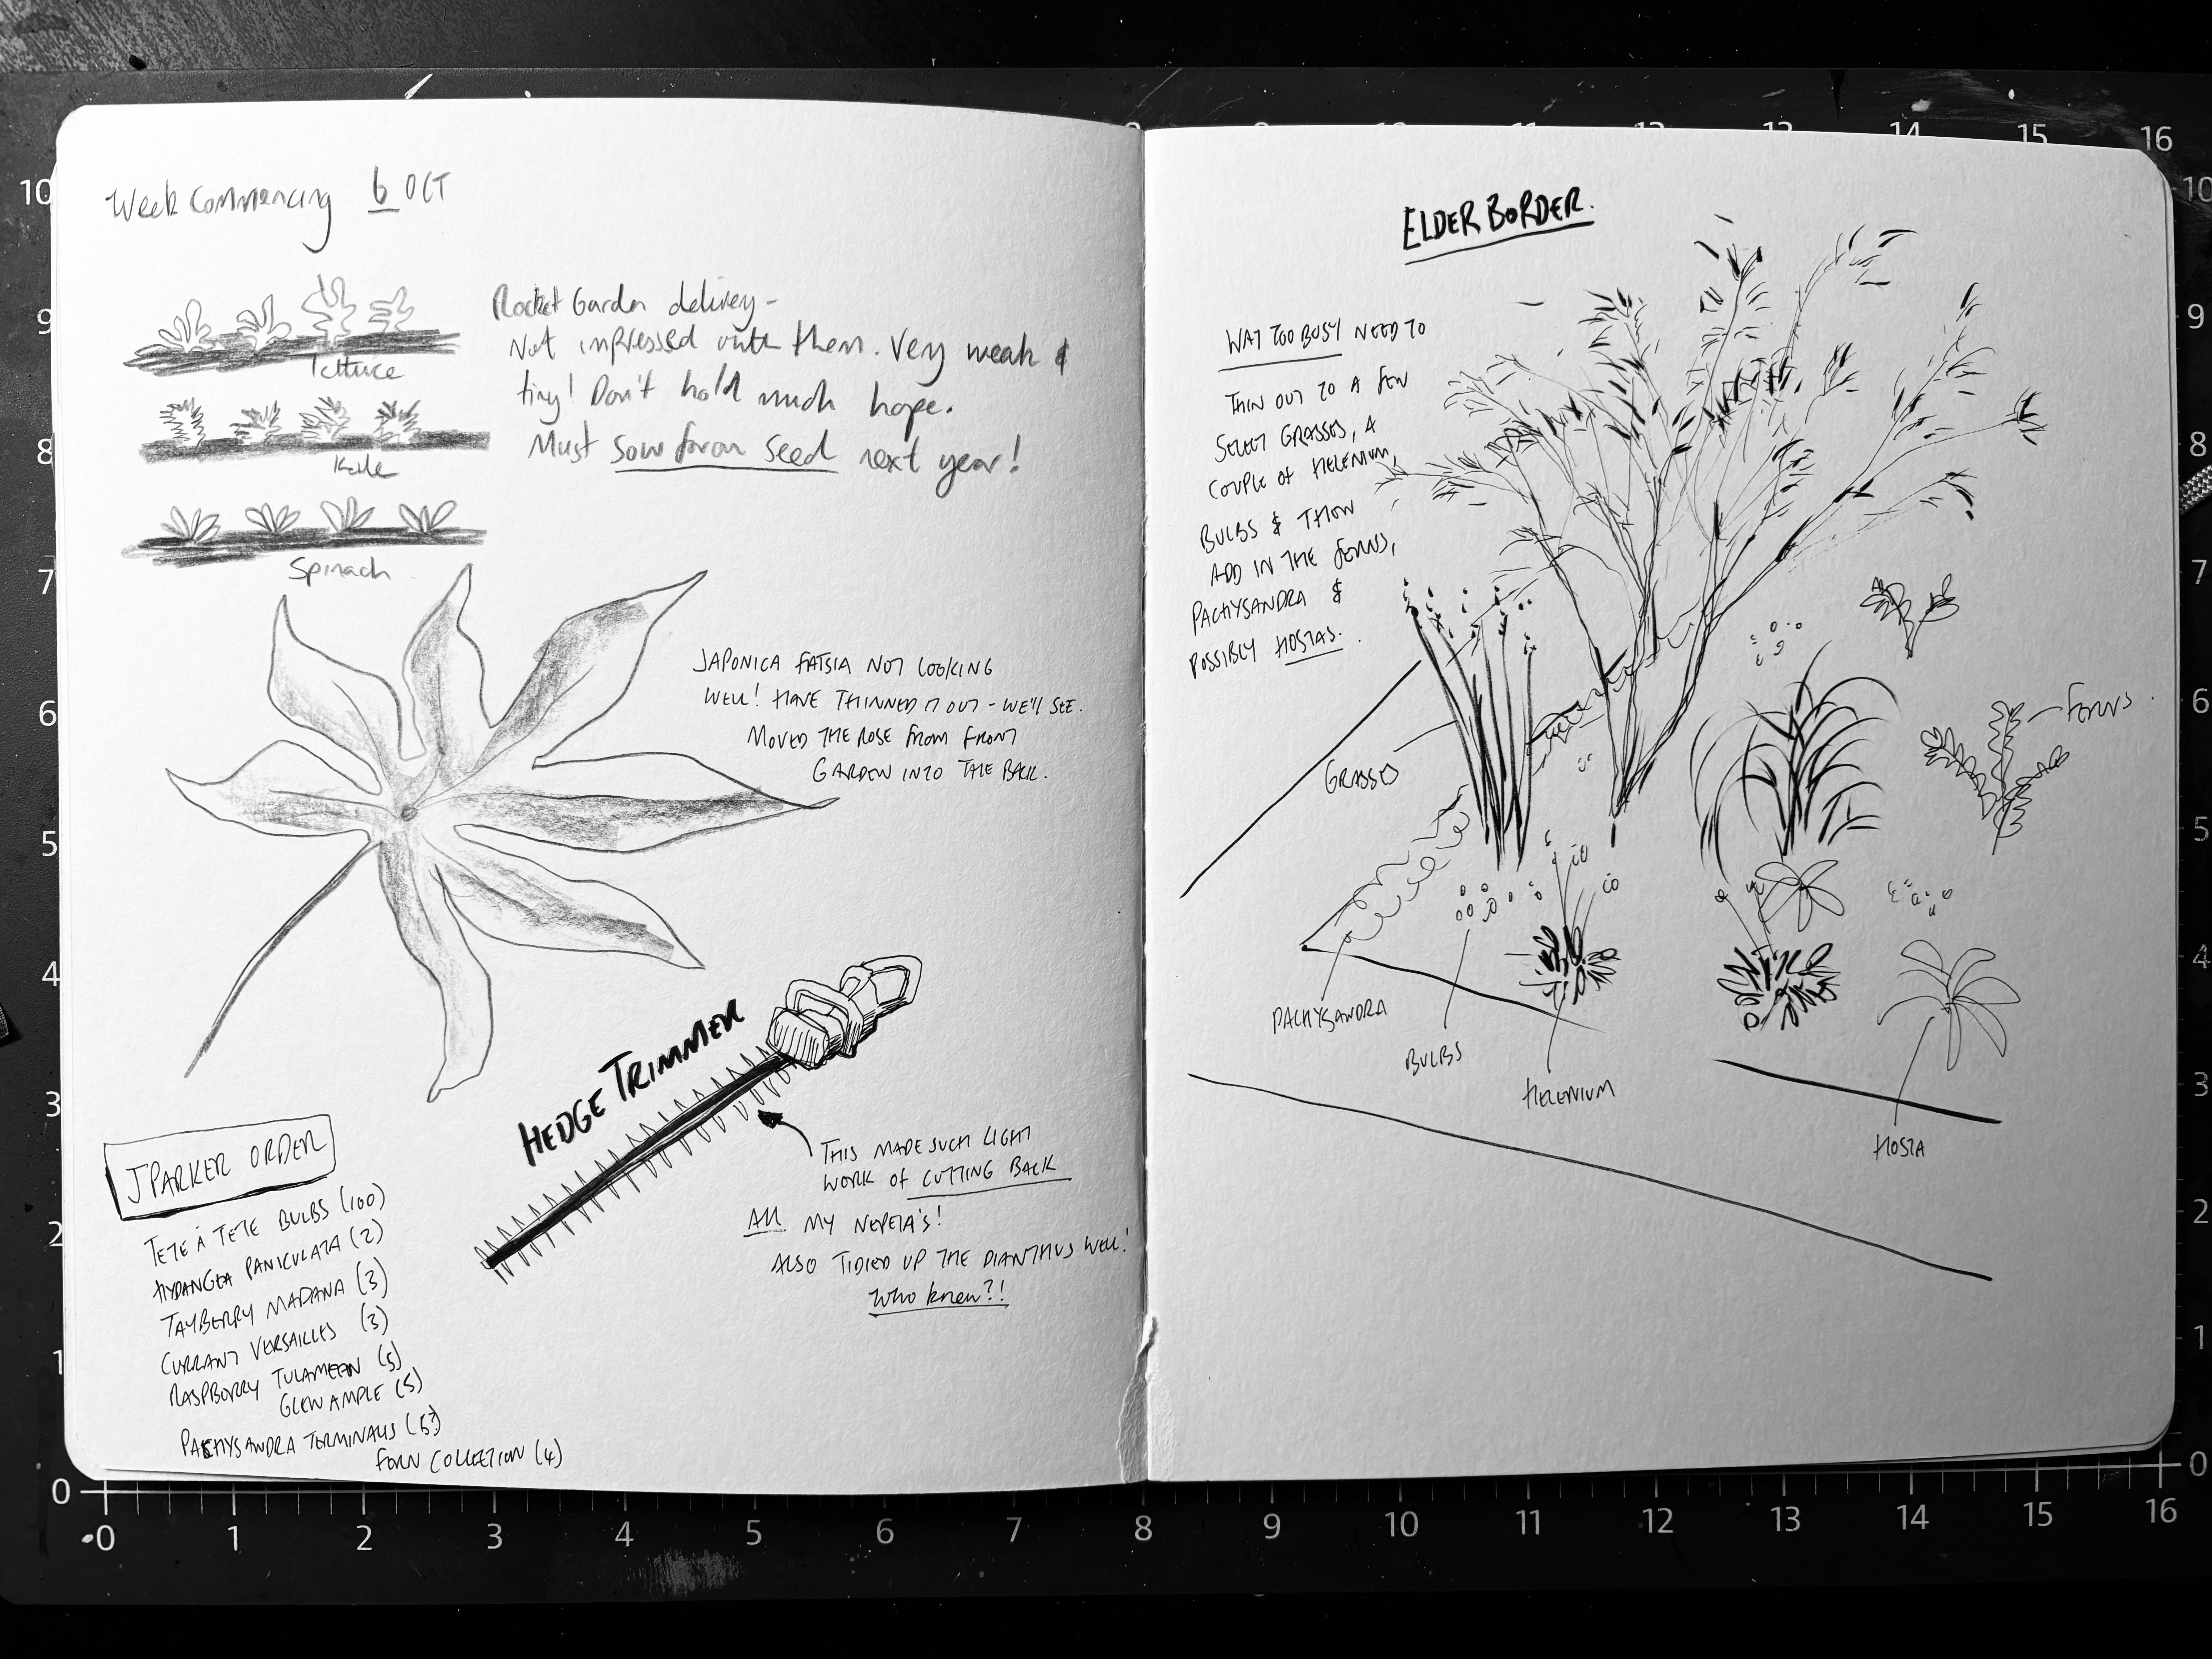 Week Commencing 6 OCT
lettuce
Kale
Spinach
Rocket Garden delivery -
Not impressed with them. Very weak &
tiny! Don't hold much hope.
Must sow from seed next year!
JAPONICA FATSIA NOT LOOKING
WELL! HAVE THINNED IT OUT - WE'LL SEE.
MOVED THE ROSE FROM FRONT
GARDEN INTO THE BACK.
HEDGE TRIMMER
THIS MADE SUCH LIGHT
WORK OF CUTTING BACK
All MY NEPETA'S!
ALSO TIDIED UP THE DIANTHUS WELL!
Who knew?!
JPARKER ORDER
TETE À TETE BULBS (100)
HYDANGEA PANICULATA (2)
TAYBERRY MADANA (3)
CURRANT VERSAILLES (3)
RASPBERRY TULAMEEN (5)
GLEN AMPLE (5)
PACHYSANDRA TERMINALIS (5?)
FERN COLLECTION (4)
ELDER BORDER.
WAY TOO BUSY NEED TO
THIN OUT TO A FEW
SELECT GRASSES, A
COUPLE OF HELENIUM,
BULBS & THEN
ADD IN THE FERNS,
PACHYSANDRA &
POSSIBLY HOSTAS.
GRASSES
FERNS
PACHYSANDRA
BULBS
HELENIUM
HOSTA
10
9
8
7
6
5
4
3
2
1
0
0 1 2 3 4 5 6 7 8 9 10 11 12 13 14 15 16
8 9 10 11 12 13 14 15 16
10
9
8
7
6
5
4
3
2
1
0